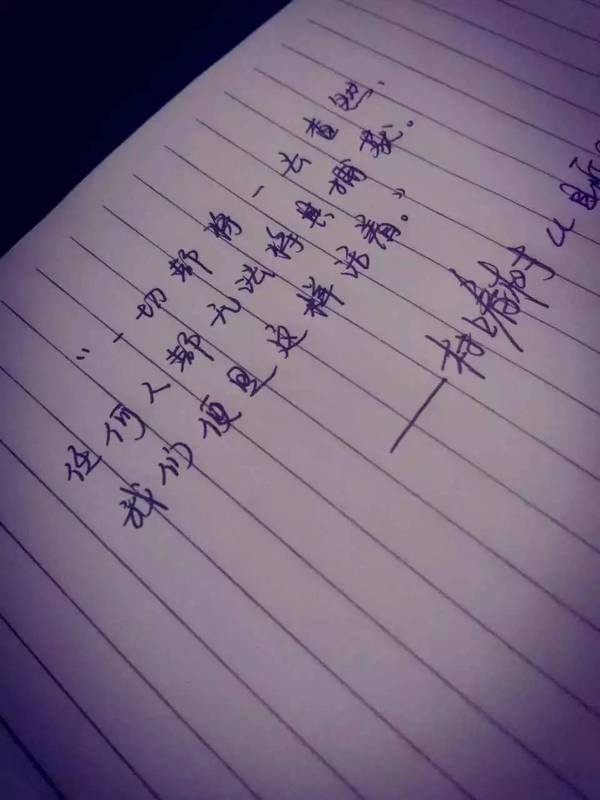 “一切都将一去杳远,
任何人都无法将其捕获。
我们便是这样活着。”
——村上春树《且听